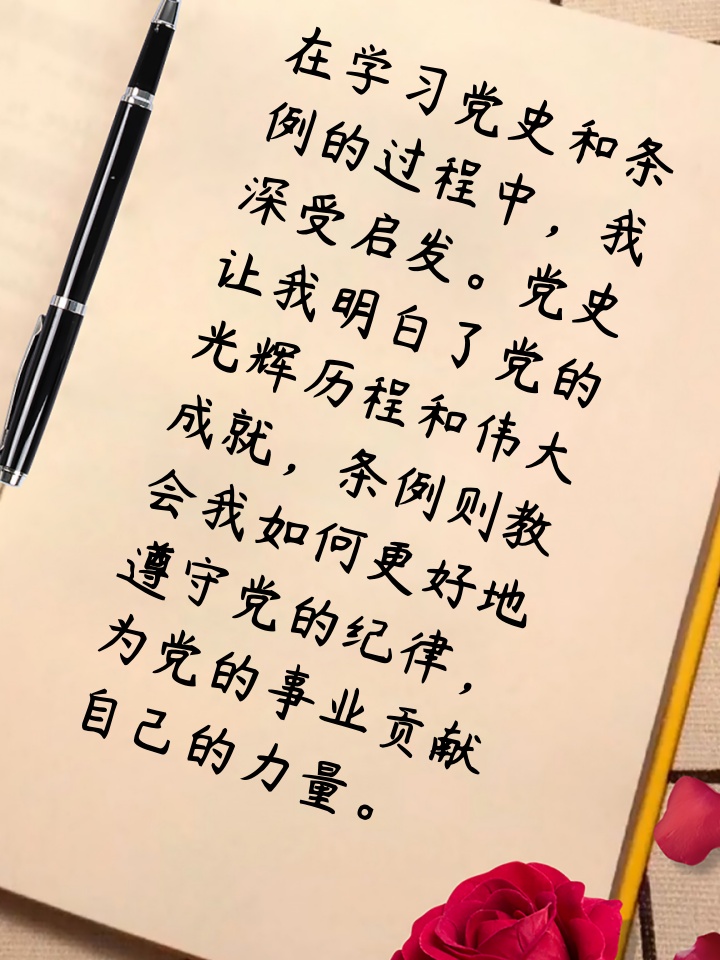 在学习党史和条
例的过程中，我
深受启发。党史
让我明白了党的
光辉历程和伟大
成就，条例则教
会我如何更好地
遵守党的纪律，
为党的事业贡献
自己的力量。